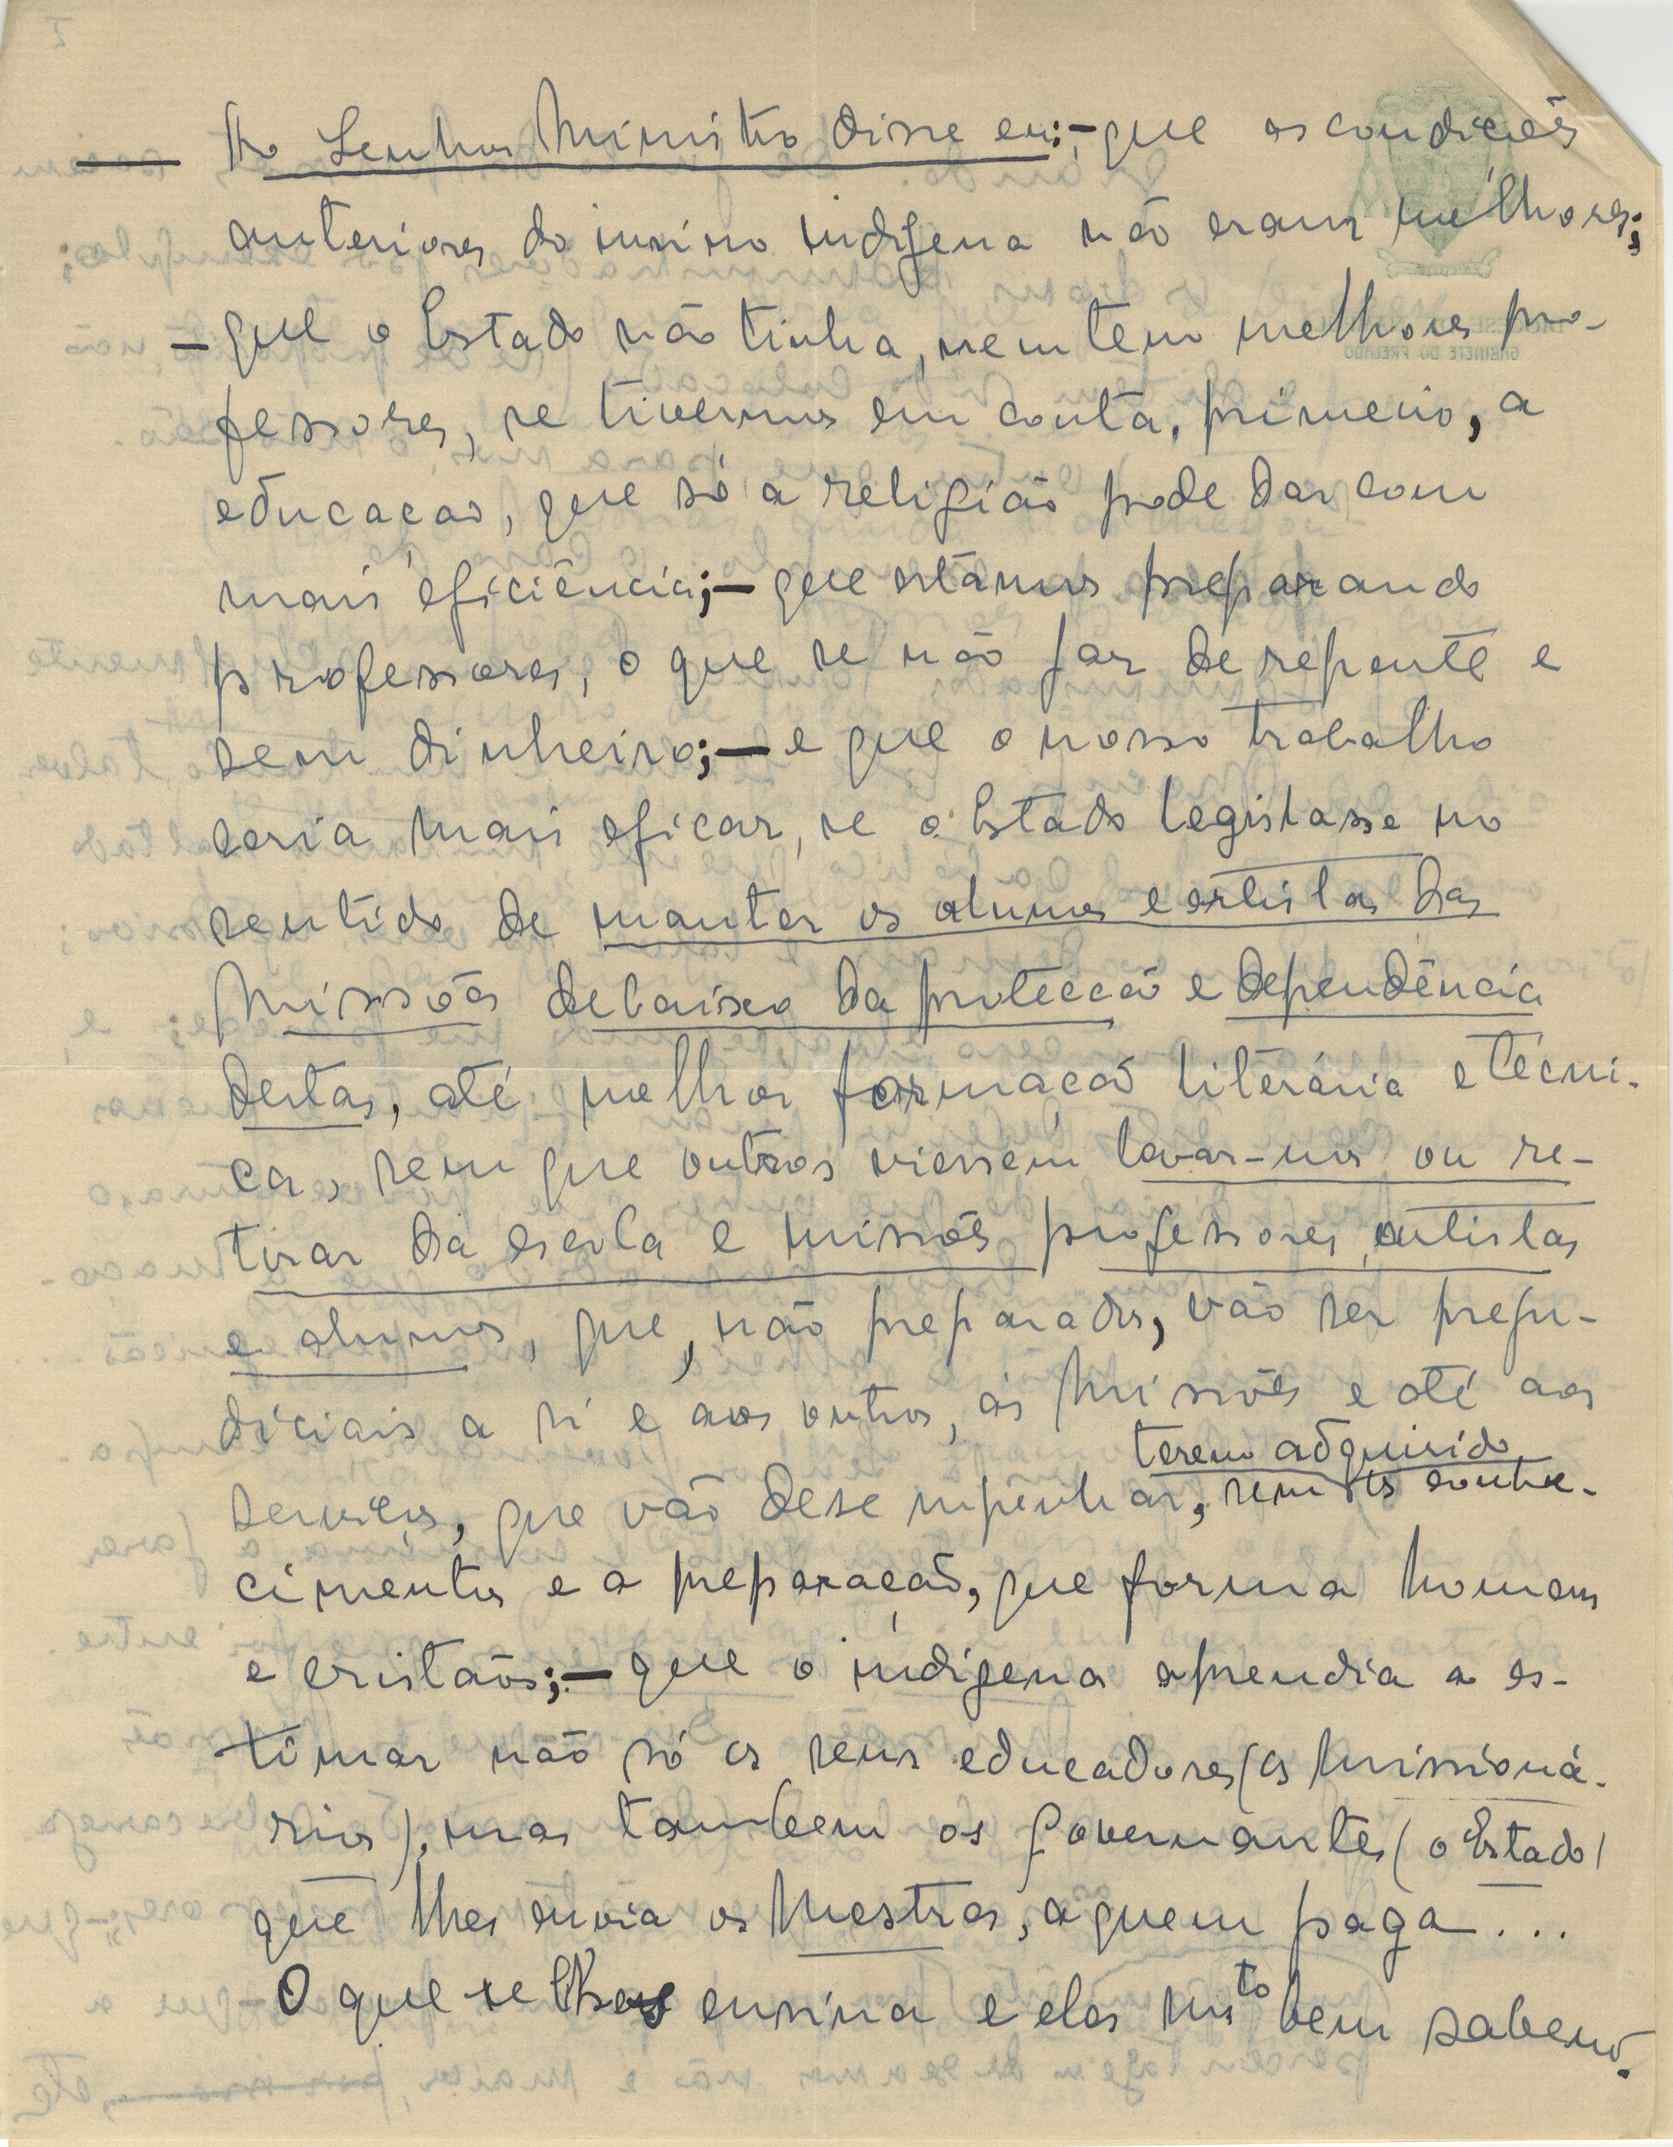 — Ao Senhor Ministro disse eu:- que as condições
anteriores do ensino indígena não eram melhores;
- que o Estado não tinha, nem tem melhores pro-
fessores, se tivermos em conta, primeiro, a
educação, que só a religião pode dar com
mais eficiência;— que estamos preparando
professores, o que se não faz de repente e
sem dinheiro;— e que o nosso trabalho
seria mais eficaz, se o Estado legislasse no
sentido de manter os alunos e artistas das
Missões debaixo da protecção e dependência
destas, até melhor formação literária e técni-
ca, sem que outros viessem levar-nos ou re-
tirar da escola e missões professores, artistas
e alunos, que, não preparados, vão ser preju-
diciais a si e aos outros, às Missões e até aos
terem adquirido
serviços, que vão desempenhar, sem os conhe-
cimentos e a preparação, que forma homens
e cristãos;— que o indígena aprendia a es-
timar não só os seus educadores (os Missioná-
rios), mas tambem os governantes (o Estado)
que lhes envia os Mestres, a quem paga...
O que se lhes ensina e eles mto bem sabem.